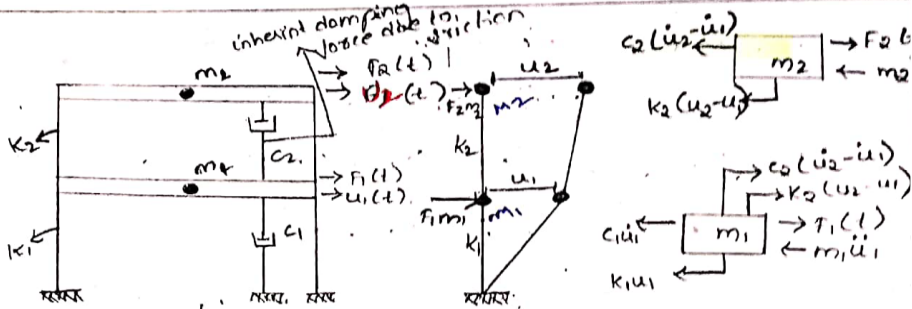 inherint damping
force due to,
friction
F2(t)
U2(t)
m2
K2
C2.
m1
F1(t)
u1(t)
K1
C1
u2
m2
K2
u1
m1
K1
c2(u̇2-u̇1)
m2
K2(u2-u
c2(u̇2-u̇1)
K2(u2-u1)
c1u̇1
m1
F1(t)
m1ü1
K1u1